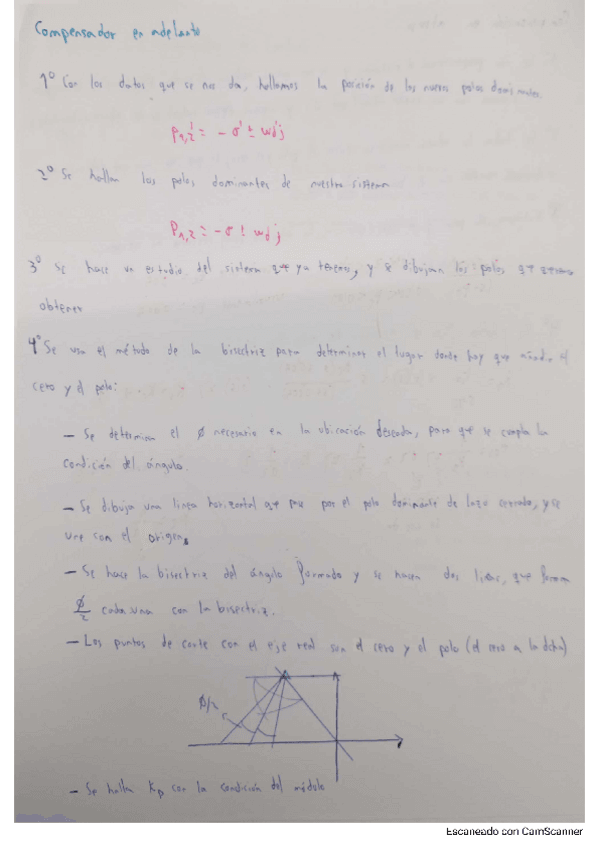 Compensador en adelanto
1º Con los datos que se nos da, hallamos la posición de los nuevos polos dominantes.
P₁,₂' = - σ' ± wd'j
2º Se hallan los polos dominantes de nuestro sistema
P₁,₂ = - σ ± wdj
3º Se hace un estudio del sistema que ya tenemos, y se dibujan los polos que queremos
obtener
4º Se usa el método de la bisectriz para determinar el lugar donde hay que añadir el
cero y el polo:
- Se determina el ϕ necesario en la ubicación deseada, para que se cumpla la
condición del ángulo.
- Se dibuja una linea horizontal que pase por el polo dominante de lazo cerrado, y se
une con el origen.
- Se hace la bisectriz del ángulo formado y se hacen dos lineas, que forman
ϕ/2 cada una con la bisectriz.
- Los puntos de corte con el eje real son el cero y el polo (el cero a la dcha)
ϕ/2
- Se halla Kp con la condición del módulo
Escaneado con CamScanner